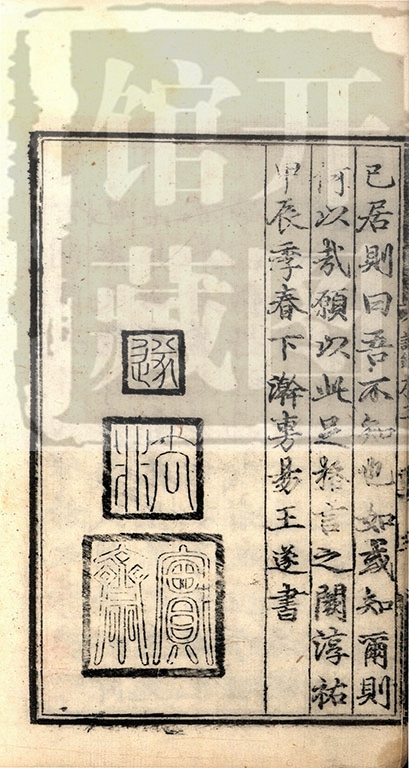 已居則曰吾不知也如或知爾則
何以哉願以此足言之闕淳祐
甲辰季春下澣王遂書
遂
去非
實齋
馆藏